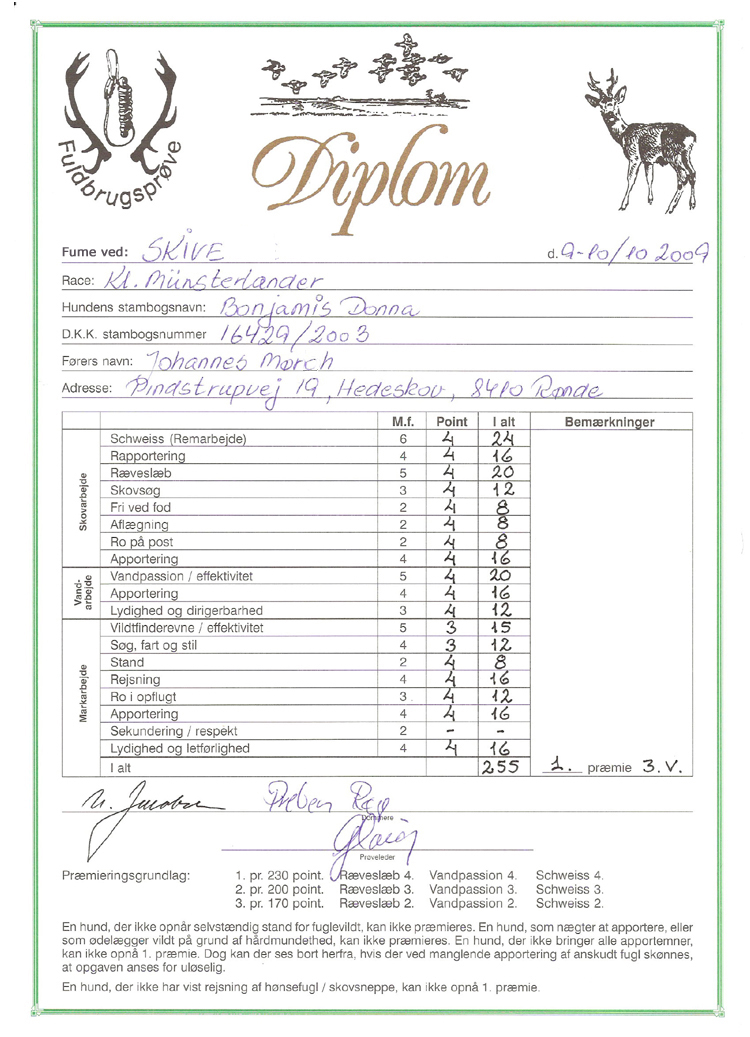 Fuldbrugsprøve
Diplom
Fume ved: SKIVE d. 9-10/10 2009
Race: Kl. Münsterlander
Hundens stambogsnavn: Bonjamis Donna
D.K.K. stambogsnummer 16429/2003
Førers navn: Johannes Mørch
Adresse: Pindstrupvej 19, Hedeskov, 8410 Rønde
M.f. Point I alt Bemærkninger
Skovarbejde
Schweiss (Remarbejde) 6 4 24
Rapportering 4 4 16
Ræveslæb 5 4 20
Skovsøg 3 4 12
Fri ved fod 2 4 8
Aflægning 2 4 8
Ro på post 2 4 8
Apportering 4 4 16
Vand-
arbejde
Vandpassion / effektivitet 5 4 20
Apportering 4 4 16
Lydighed og dirigerbarhed 3 4 12
Markarbejde
Vildtfinderevne / effektivitet 5 3 15
Søg, fart og stil 4 3 12
Stand 2 4 8
Rejsning 4 4 16
Ro i opflugt 3 4 12
Apportering 4 4 16
Sekundering / respekt 2 - -
Lydighed og letførlighed 4 4 16
I alt 255 1. præmie 3. V.
Preben
Dommere
Prøveleder
Præmieringsgrundlag: 1. pr. 230 point. Ræveslæb 4. Vandpassion 4. Schweiss 4.
2. pr. 200 point. Ræveslæb 3. Vandpassion 3. Schweiss 3.
3. pr. 170 point. Ræveslæb 2. Vandpassion 2. Schweiss 2.
En hund, der ikke opnår selvstændig stand for fuglevildt, kan ikke præmieres. En hund, som nægter at apportere, eller
som ødelægger vildt på grund af hårdmundethed, kan ikke præmieres. En hund, der ikke bringer alle apportemner,
kan ikke opnå 1. præmie. Dog kan der ses bort herfra, hvis der ved manglende apportering af anskudt fugl skønnes,
at opgaven anses for uløselig.
En hund, der ikke har vist rejsning af hønsefugl / skovsneppe, kan ikke opnå 1. præmie.